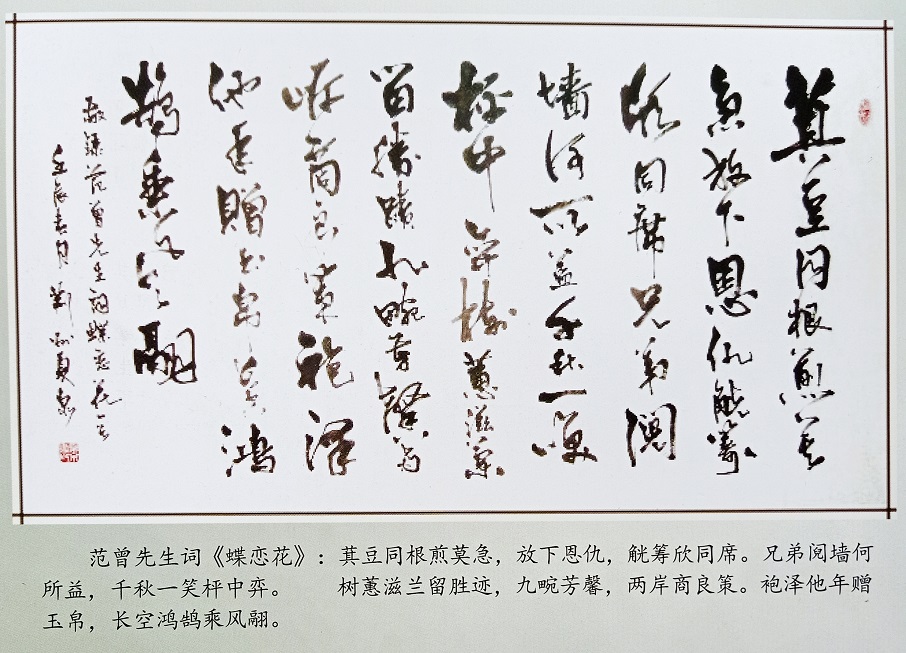 萁豆同根煎莫
急放下恩仇觥籌
欣同席兄弟鬩
墙何所益千秋一笑
枰中弈樹蕙滋蘭
留勝蹟九畹芳馨兩
岸商良策袍澤
他年贈玉帛長空鴻
鵠乘風翮
敬録范曾先生詞蝶恋花一首
壬辰春月
范曾先生词《蝶恋花》：萁豆同根煎莫急，放下恩仇，觥筹欣同席。兄弟阋墙何
所益，千秋一笑枰中弈。 树蕙滋兰留胜迹，九畹芳馨，两岸商良策。袍泽他年赠
玉帛，长空鸿鹄乘风翮。